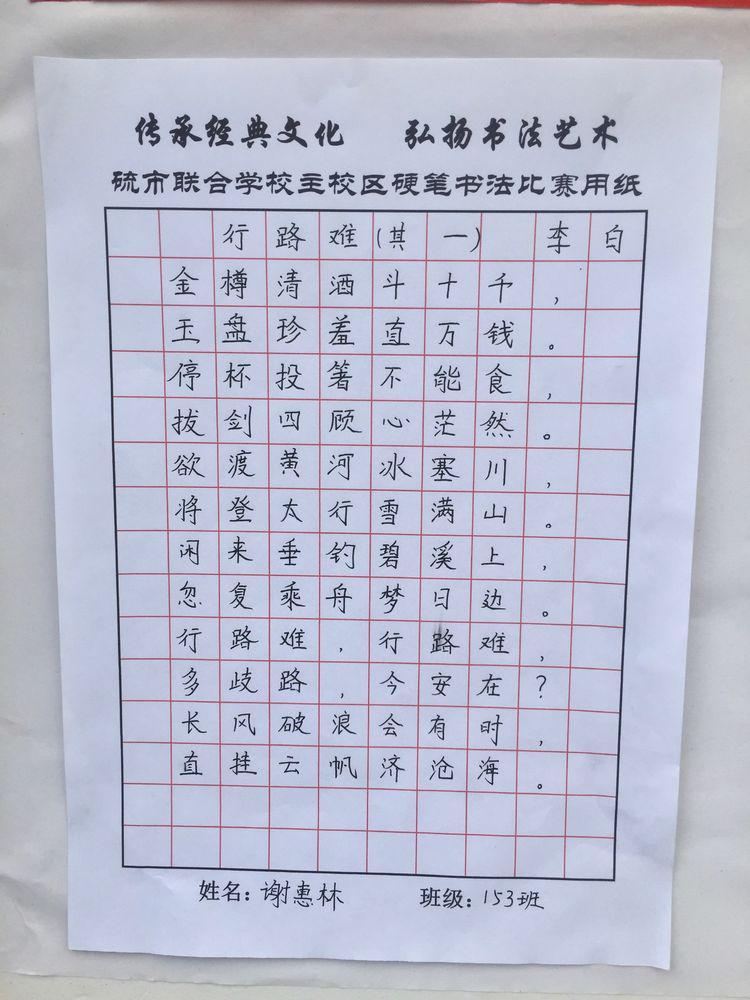 传承经典文化 弘扬书法艺术
硫市联合学校主校区硬笔书法比赛用纸
行路难(其一) 李白
金樽清酒斗十千,
玉盘珍羞直万钱。
停杯投箸不能食,
拔剑四顾心茫然。
欲渡黄河冰塞川,
将登太行雪满山。
闲来垂钓碧溪上,
忽复乘舟梦日边。
行路难,行路难,
多歧路,今安在?
长风破浪会有时,
直挂云帆济沧海。
姓名:谢惠林 班级:153班